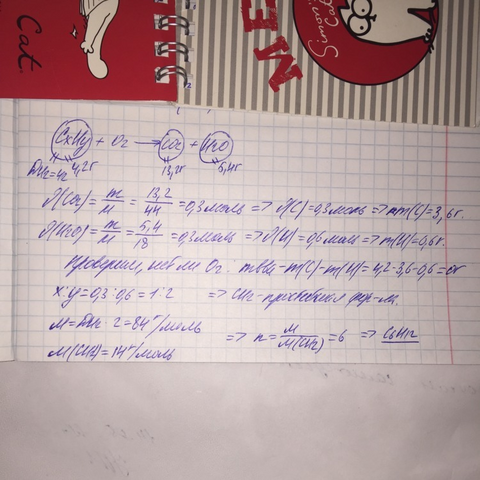 Cat.
ME
Simon's Cat
CxHy + O₂ → CO₂ + H₂O
4,2г 13,2г 5,4г
DH₂=42
ν(CO₂) = m/M = 13,2/44 = 0,3 моль => ν(C) = 0,3 моль => m(C) = 3,6г.
ν(H₂O) = m/M = 5,4/18 = 0,3 моль => ν(H) = 0,6 моль => m(H) = 0,6г.
Проверим, нет ли O₂: mвещ - m(C) - m(H) = 4,2-3,6-0,6 = 0г
x:y = 0,3:0,6 = 1:2 => CH₂ - простейшая фор-ла.
M = DH₂ · 2 = 84 г/моль => n = M/M(CH₂) = 6 => C₆H₁₂
M(CH₂) = 14 г/моль